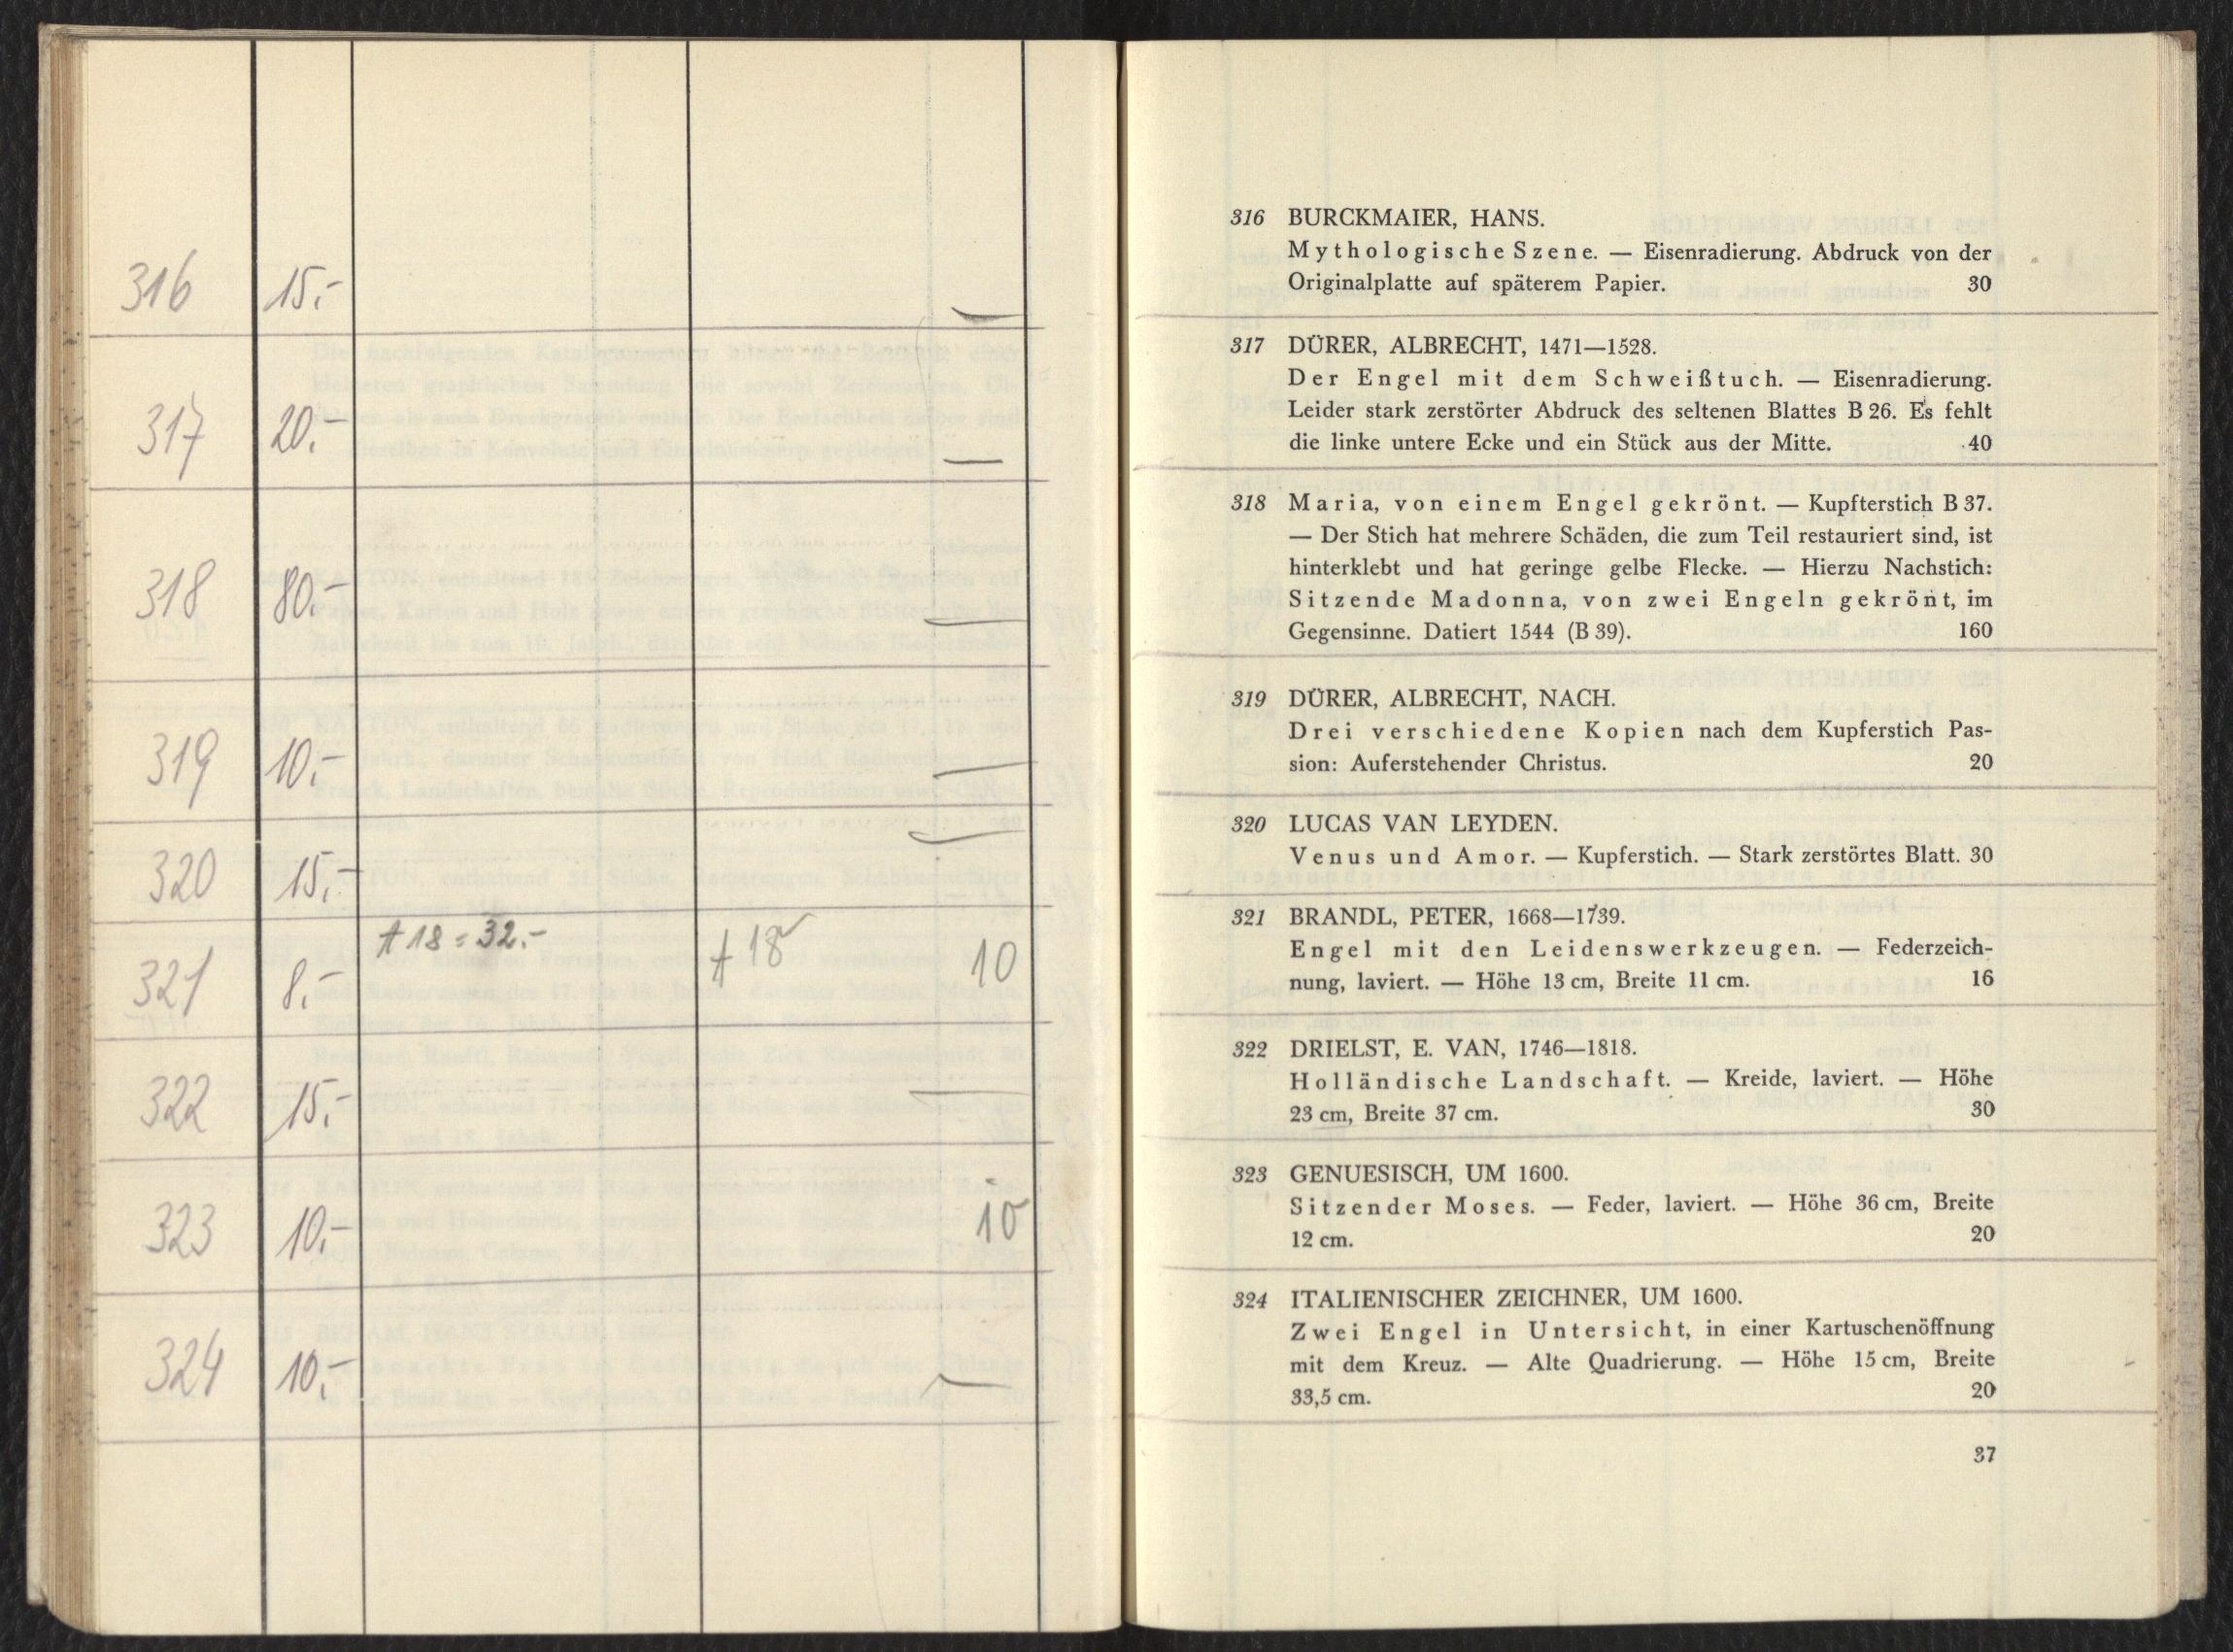 316 15.- —
317 20.- —
318 80.- —
319 10.- —
320 15.- —
+ 18 = 32.-
321 8.- + 18 10
322 15.- —
323 10.- 10
324 10.- —
316 BURCKMAIER, HANS.
Mythologische Szene. — Eisenradierung. Abdruck von der
Originalplatte auf späterem Papier. 30
317 DÜRER, ALBRECHT, 1471—1528.
Der Engel mit dem Schweißtuch. — Eisenradierung.
Leider stark zerstörter Abdruck des seltenen Blattes B 26. Es fehlt
die linke untere Ecke und ein Stück aus der Mitte. 40
318 Maria, von einem Engel gekrönt. — Kupfterstich B 37.
— Der Stich hat mehrere Schäden, die zum Teil restauriert sind, ist
hinterklebt und hat geringe gelbe Flecke. — Hierzu Nachstich:
Sitzende Madonna, von zwei Engeln gekrönt, im
Gegensinne. Datiert 1544 (B 39). 160
319 DÜRER, ALBRECHT, NACH.
Drei verschiedene Kopien nach dem Kupferstich Pas-
sion: Auferstehender Christus. 20
320 LUCAS VAN LEYDEN.
Venus und Amor. — Kupferstich. — Stark zerstörtes Blatt. 30
321 BRANDL, PETER, 1668—1739.
Engel mit den Leidenswerkzeugen. — Federzeich-
nung, laviert. — Höhe 13 cm, Breite 11 cm. 16
322 DRIELST, E. VAN, 1746—1818.
Holländische Landschaft. — Kreide, laviert. — Höhe
23 cm, Breite 37 cm. 30
323 GENUESISCH, UM 1600.
Sitzender Moses. — Feder, laviert. — Höhe 36 cm, Breite
12 cm. 20
324 ITALIENISCHER ZEICHNER, UM 1600.
Zwei Engel in Untersicht, in einer Kartuschenöffnung
mit dem Kreuz. — Alte Quadrierung. — Höhe 15 cm, Breite
33,5 cm. 20
37